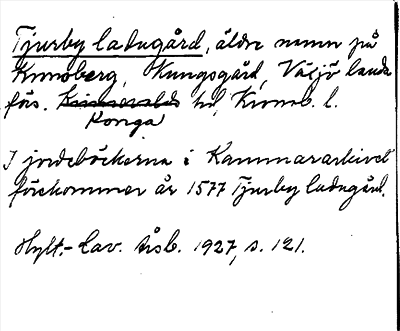 Tjurby ladugård, äldre namn på
Kronoberg, Kungsgård, Växjö lands
förs. Kinnevalds hd, Kronob. l.
Konga
I jordeböckerna i Kammararkivet
förekommer år 1577 Tjurby ladugård.
Hylt.-Cav. årsb. 1927, s. 121.